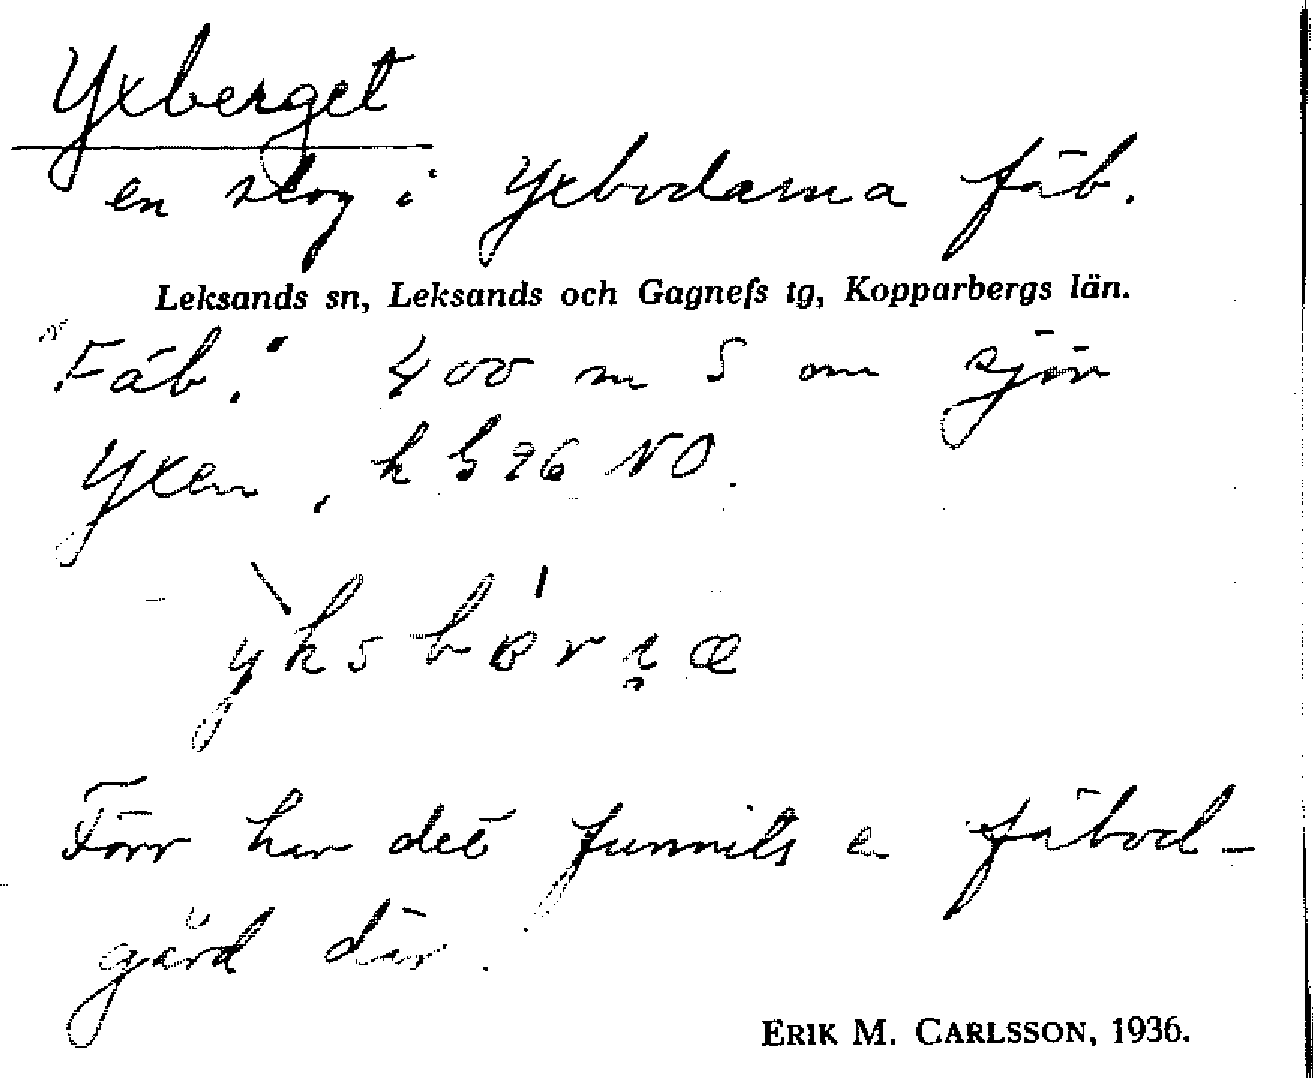 Yxberget
en skog i Yxbodarna fäb.
Leksands sn, Leksands och Gagnefs tg, Kopparbergs län.
Fäb. : 400 m S om sjön
Yxen, k 596 NO.
Förr har det funnits en fäbod-
gård där.
ERIK M. CARLSSON, 1936.